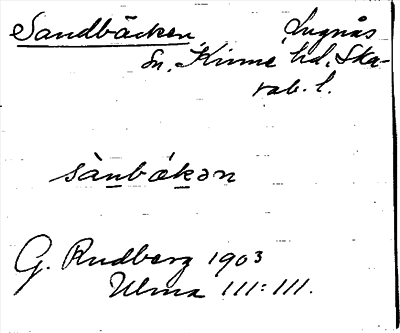 Sandbäcken, Lugnås
sn, Kinne hd, Ska-
rab. l.
sànb\u00e6́kən
G. Rudberg 1903
Ulma 111:111.